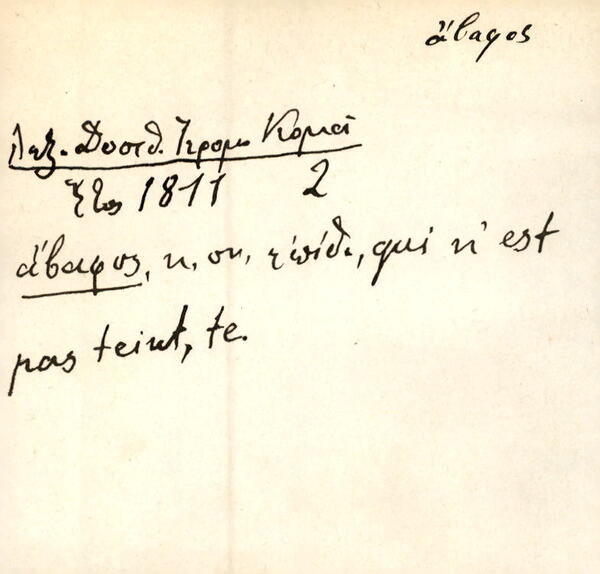 ἄβαφος
Λεξ. Δοσιθ. Ἱερομ. Κομᾶ
Ἔτος 1811 2
ἄβαφος, η, ον, ἐπίθ., qui n'est
pas teint, te.